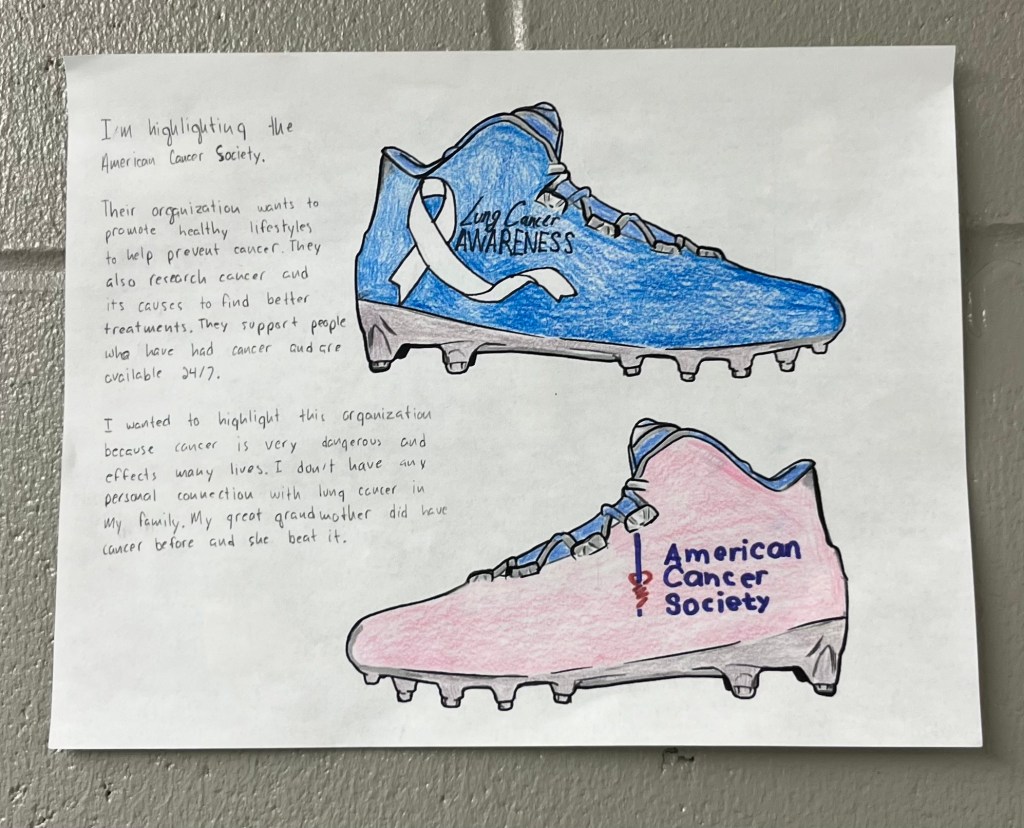 I'm highlighting the
American Cancer Society.
Their organization wants to
promote healthy lifestyles
to help prevent cancer. They
also research cancer and
its causes to find better
treatments. They support people
who have had cancer and are
available 24/7.
I wanted to highlight this organization
because cancer is very dangerous and
effects many lives. I don't have any
personal connection with lung cancer in
my family. My great grandmother did have
cancer before and she beat it.
Lung Cancer
AWARENESS
American
Cancer
Society